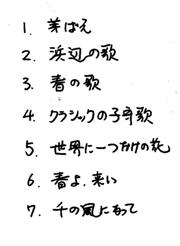 1. 芽ばえ
2. 浜辺の歌
3. 春の歌
4. クラシックの子守歌
5. 世界に一つだけの花
6. 春よ、来い
7. 千の風になって